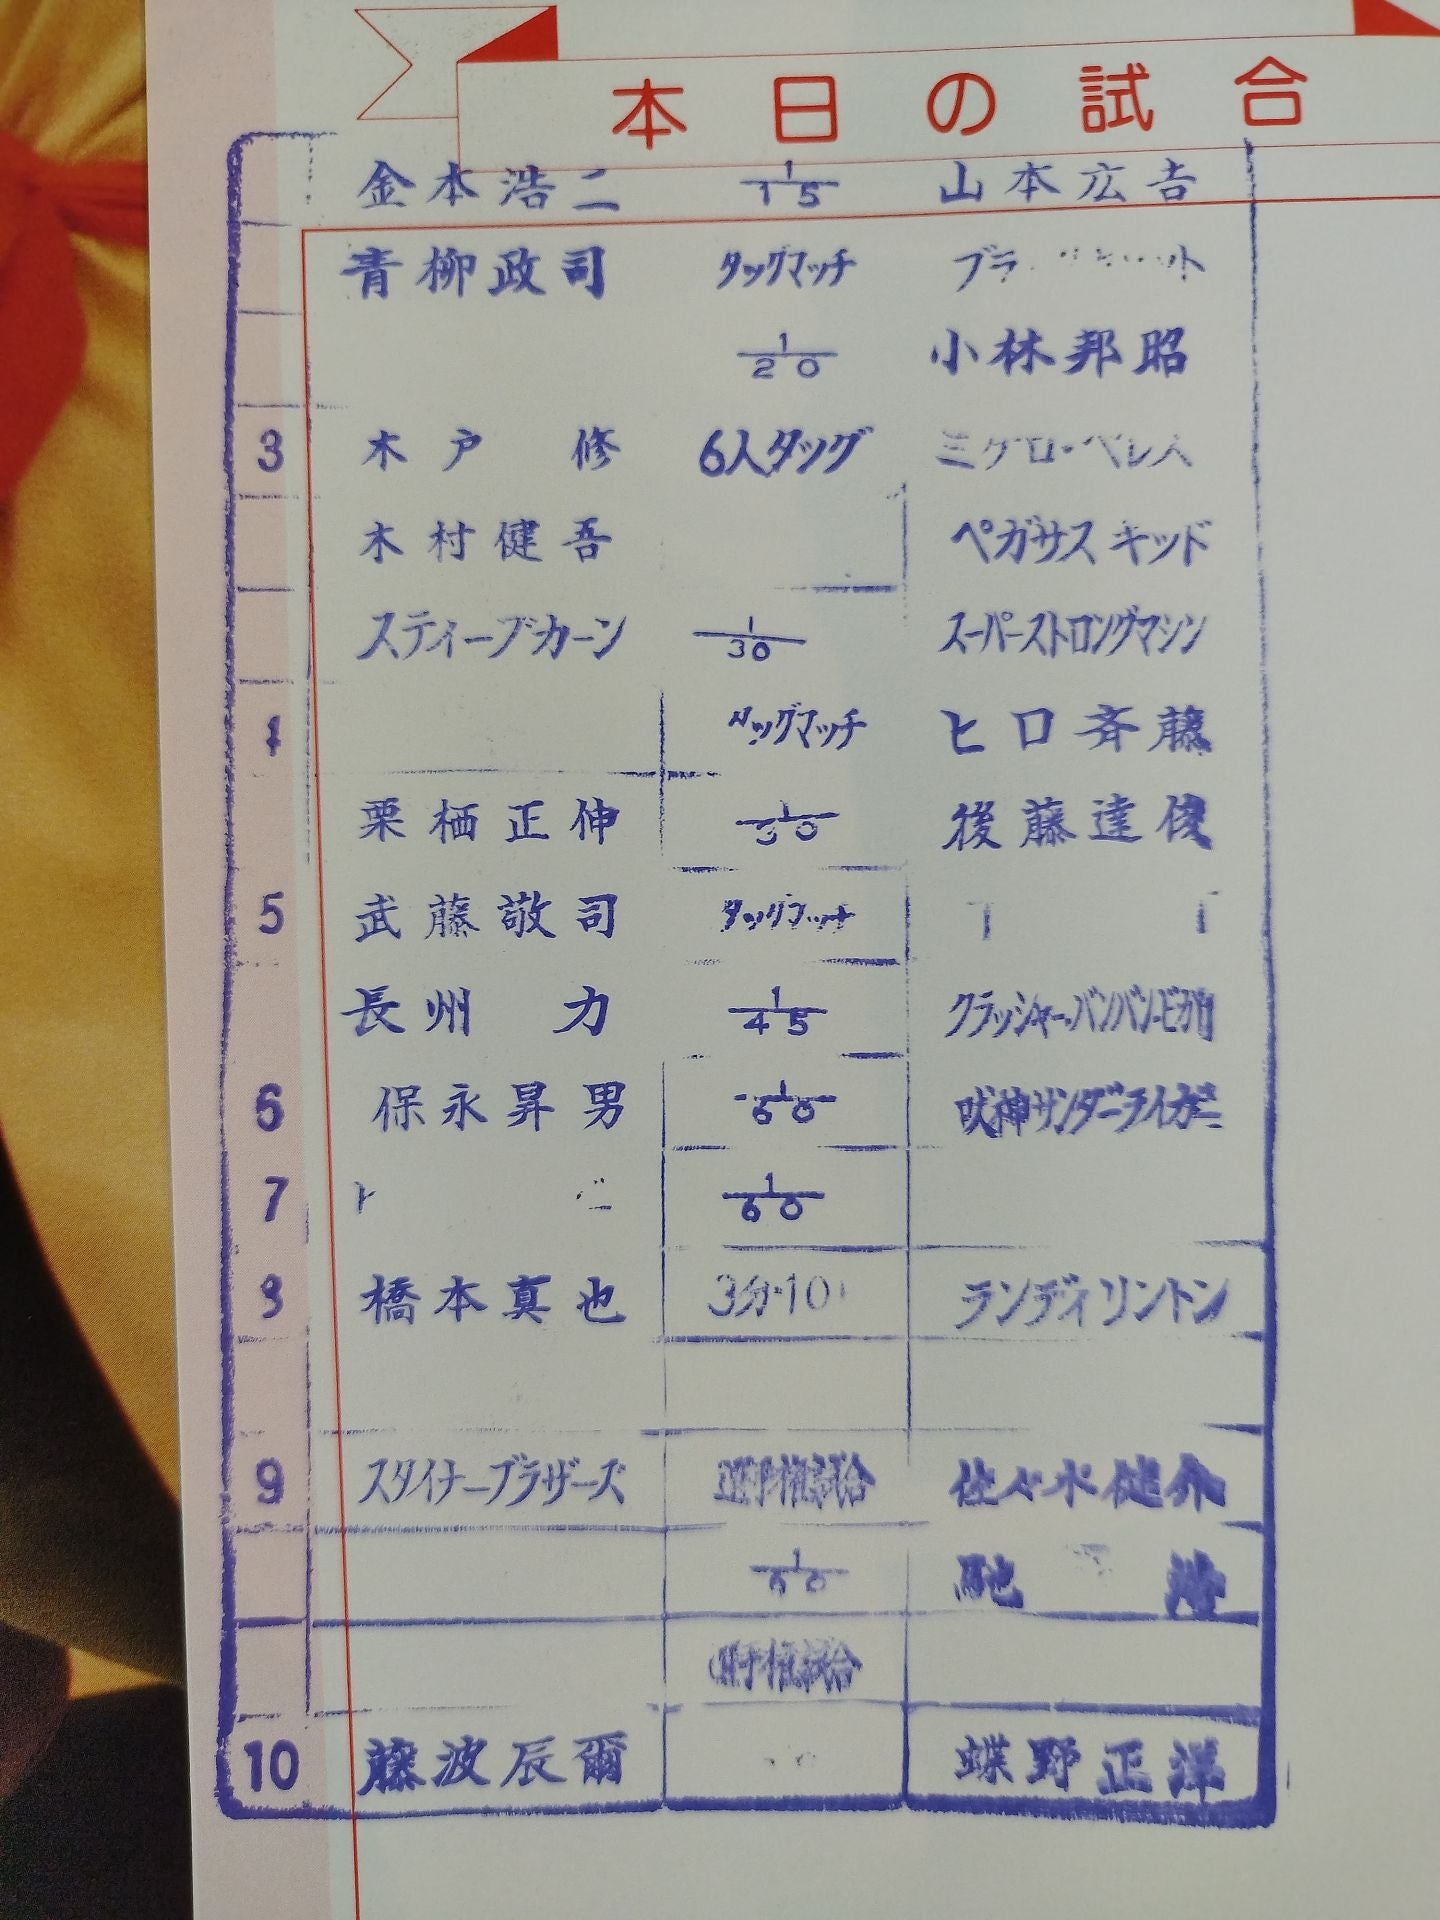 本日の試合
金本浩二 1/15 山本広吉
青柳政司 タッグマッチ
1/20 小林邦昭
3 木戸 修 6人タッグ ミグロ・ペレス
木村健吾 ペガサスキッド
スティーブカーン 1/30 スーパーストロングマシン
タッグマッチ ヒロ斉藤
栗栖正伸 1/30 後藤達俊
5 武藤敬司 タッグマッチ
長州 力 1/45 クラッシャー・バンバン・ビガロ
6 保永昇男 1/60 獣神サンダーライガー
7 1/60
橋本真也 3分・10 ランディソントン
9 スタイナーブラザーズ 選手権試合 佐々木健介
1/60 馳 浩
選手権試合
10 藤波辰爾 蝶野正洋